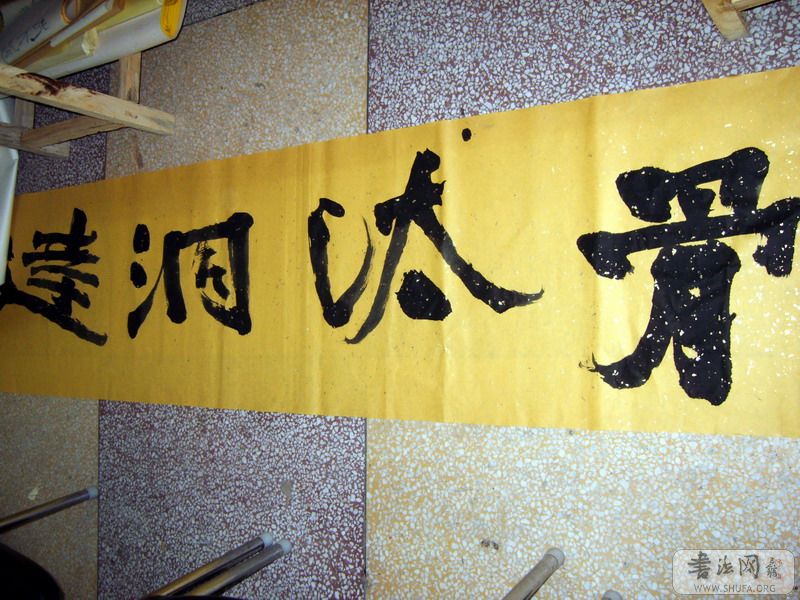 骨洞達
書法网
WWW.SHUFA.ORG